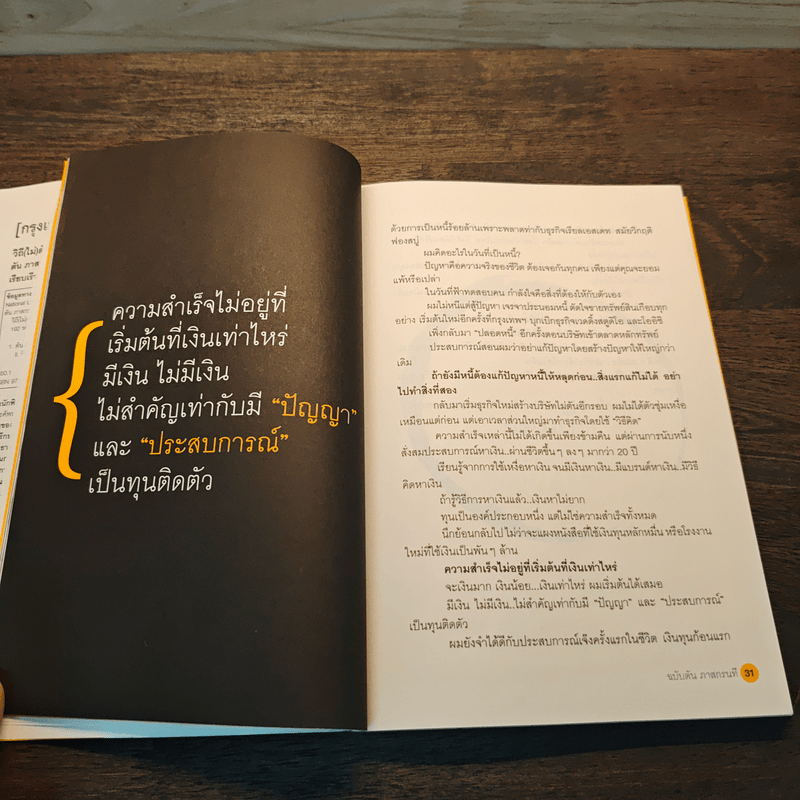 [กรุงเ
วิถี(ไม่)ตั
ตัน ภาส
เรียบเรี
ข้อมูลทาง
National L
ตัน ภาสก
ความสำเร็จไม่อยู่ที่
เริ่มต้นที่เงินเท่าไหร่
มีเงิน ไม่มีเงิน
ไม่สำคัญเท่ากับมี “ปัญญา”
และ “ประสบการณ์”
เป็นทุนติดตัว
ด้วยการเป็นหนี้ร้อยล้านเพราะพลาดท่ากับธุรกิจเรียลเอสเตท สมัยวิกฤติ
ฟองสบู่
ผมคิดอะไรในวันที่เป็นหนี้?
ปัญหาคือความจริงของชีวิต ต้องเจอกันทุกคน เพียงแต่คุณจะยอม
แพ้หรือเปล่า
ในวันที่ฟ้าทดสอบคน กำลังใจคือสิ่งที่ต้องให้กับตัวเอง
ผมไม่หนีแต่สู้ปัญหา เจรจาประนอมหนี้ ตัดใจขายทรัพย์สินเกือบทุก
อย่าง เริ่มต้นใหม่อีกครั้งที่กรุงเทพฯ บุกเบิกธุรกิจเวดดิ้งสตูดิโอ และโออิชิ
เพิ่งกลับมา “ปลอดหนี้” อีกครั้งตอนบริษัทเข้าตลาดหลักทรัพย์
ประสบการณ์สอนผมว่าอย่าแก้ปัญหาโดยสร้างปัญหาให้ใหญ่กว่า
เดิม
ถ้ายังมีหนี้ต้องแก้ปัญหาหนี้ให้หลุดก่อน...สิ่งแรกแก้ไม่ได้ อย่า
ไปทำสิ่งที่สอง
กลับมาเริ่มธุรกิจใหม่สร้างบริษัทไม่ตันอีกรอบ ผมไม่ได้ตัวชุ่มเหงื่อ
เหมือนแต่ก่อน แต่เอาเวลาส่วนใหญ่มาทำธุรกิจโดยใช้ “วิธีคิด”
ความสำเร็จเหล่านี้ไม่ได้เกิดขึ้นเพียงข้ามคืน แต่ผ่านการนับหนึ่ง
สั่งสมประสบการณ์หาเงิน..ผ่านชีวิตขึ้นๆ ลงๆ มากว่า 20 ปี
เรียนรู้จากการใช้เหงื่อหาเงิน จนมีเงินหาเงิน..มีแบรนด์หาเงิน..มีวิธี
คิดหาเงิน
ถ้ารู้วิธีการหาเงินแล้ว..เงินหาไม่ยาก
ทุนเป็นองค์ประกอบหนึ่ง แต่ไม่ใช่ความสำเร็จทั้งหมด
นึกย้อนกลับไป ไม่ว่าจะแผงหนังสือที่ใช้เงินทุนหลักหมื่น หรือโรงงาน
ใหม่ที่ใช้เงินเป็นพันๆ ล้าน
ความสำเร็จไม่อยู่ที่เริ่มต้นที่เงินเท่าไหร่
จะเงินมาก เงินน้อย...เงินเท่าไหร่ ผมเริ่มต้นได้เสมอ
มีเงิน ไม่มีเงิน..ไม่สำคัญเท่ากับมี “ปัญญา” และ “ประสบการณ์”
เป็นทุนติดตัว
ผมยังจำได้ดีกับประสบการณ์เจ๊งครั้งแรกในชีวิต เงินทุนก้อนแรก
ฉบับตัน ภาสกรนที 31